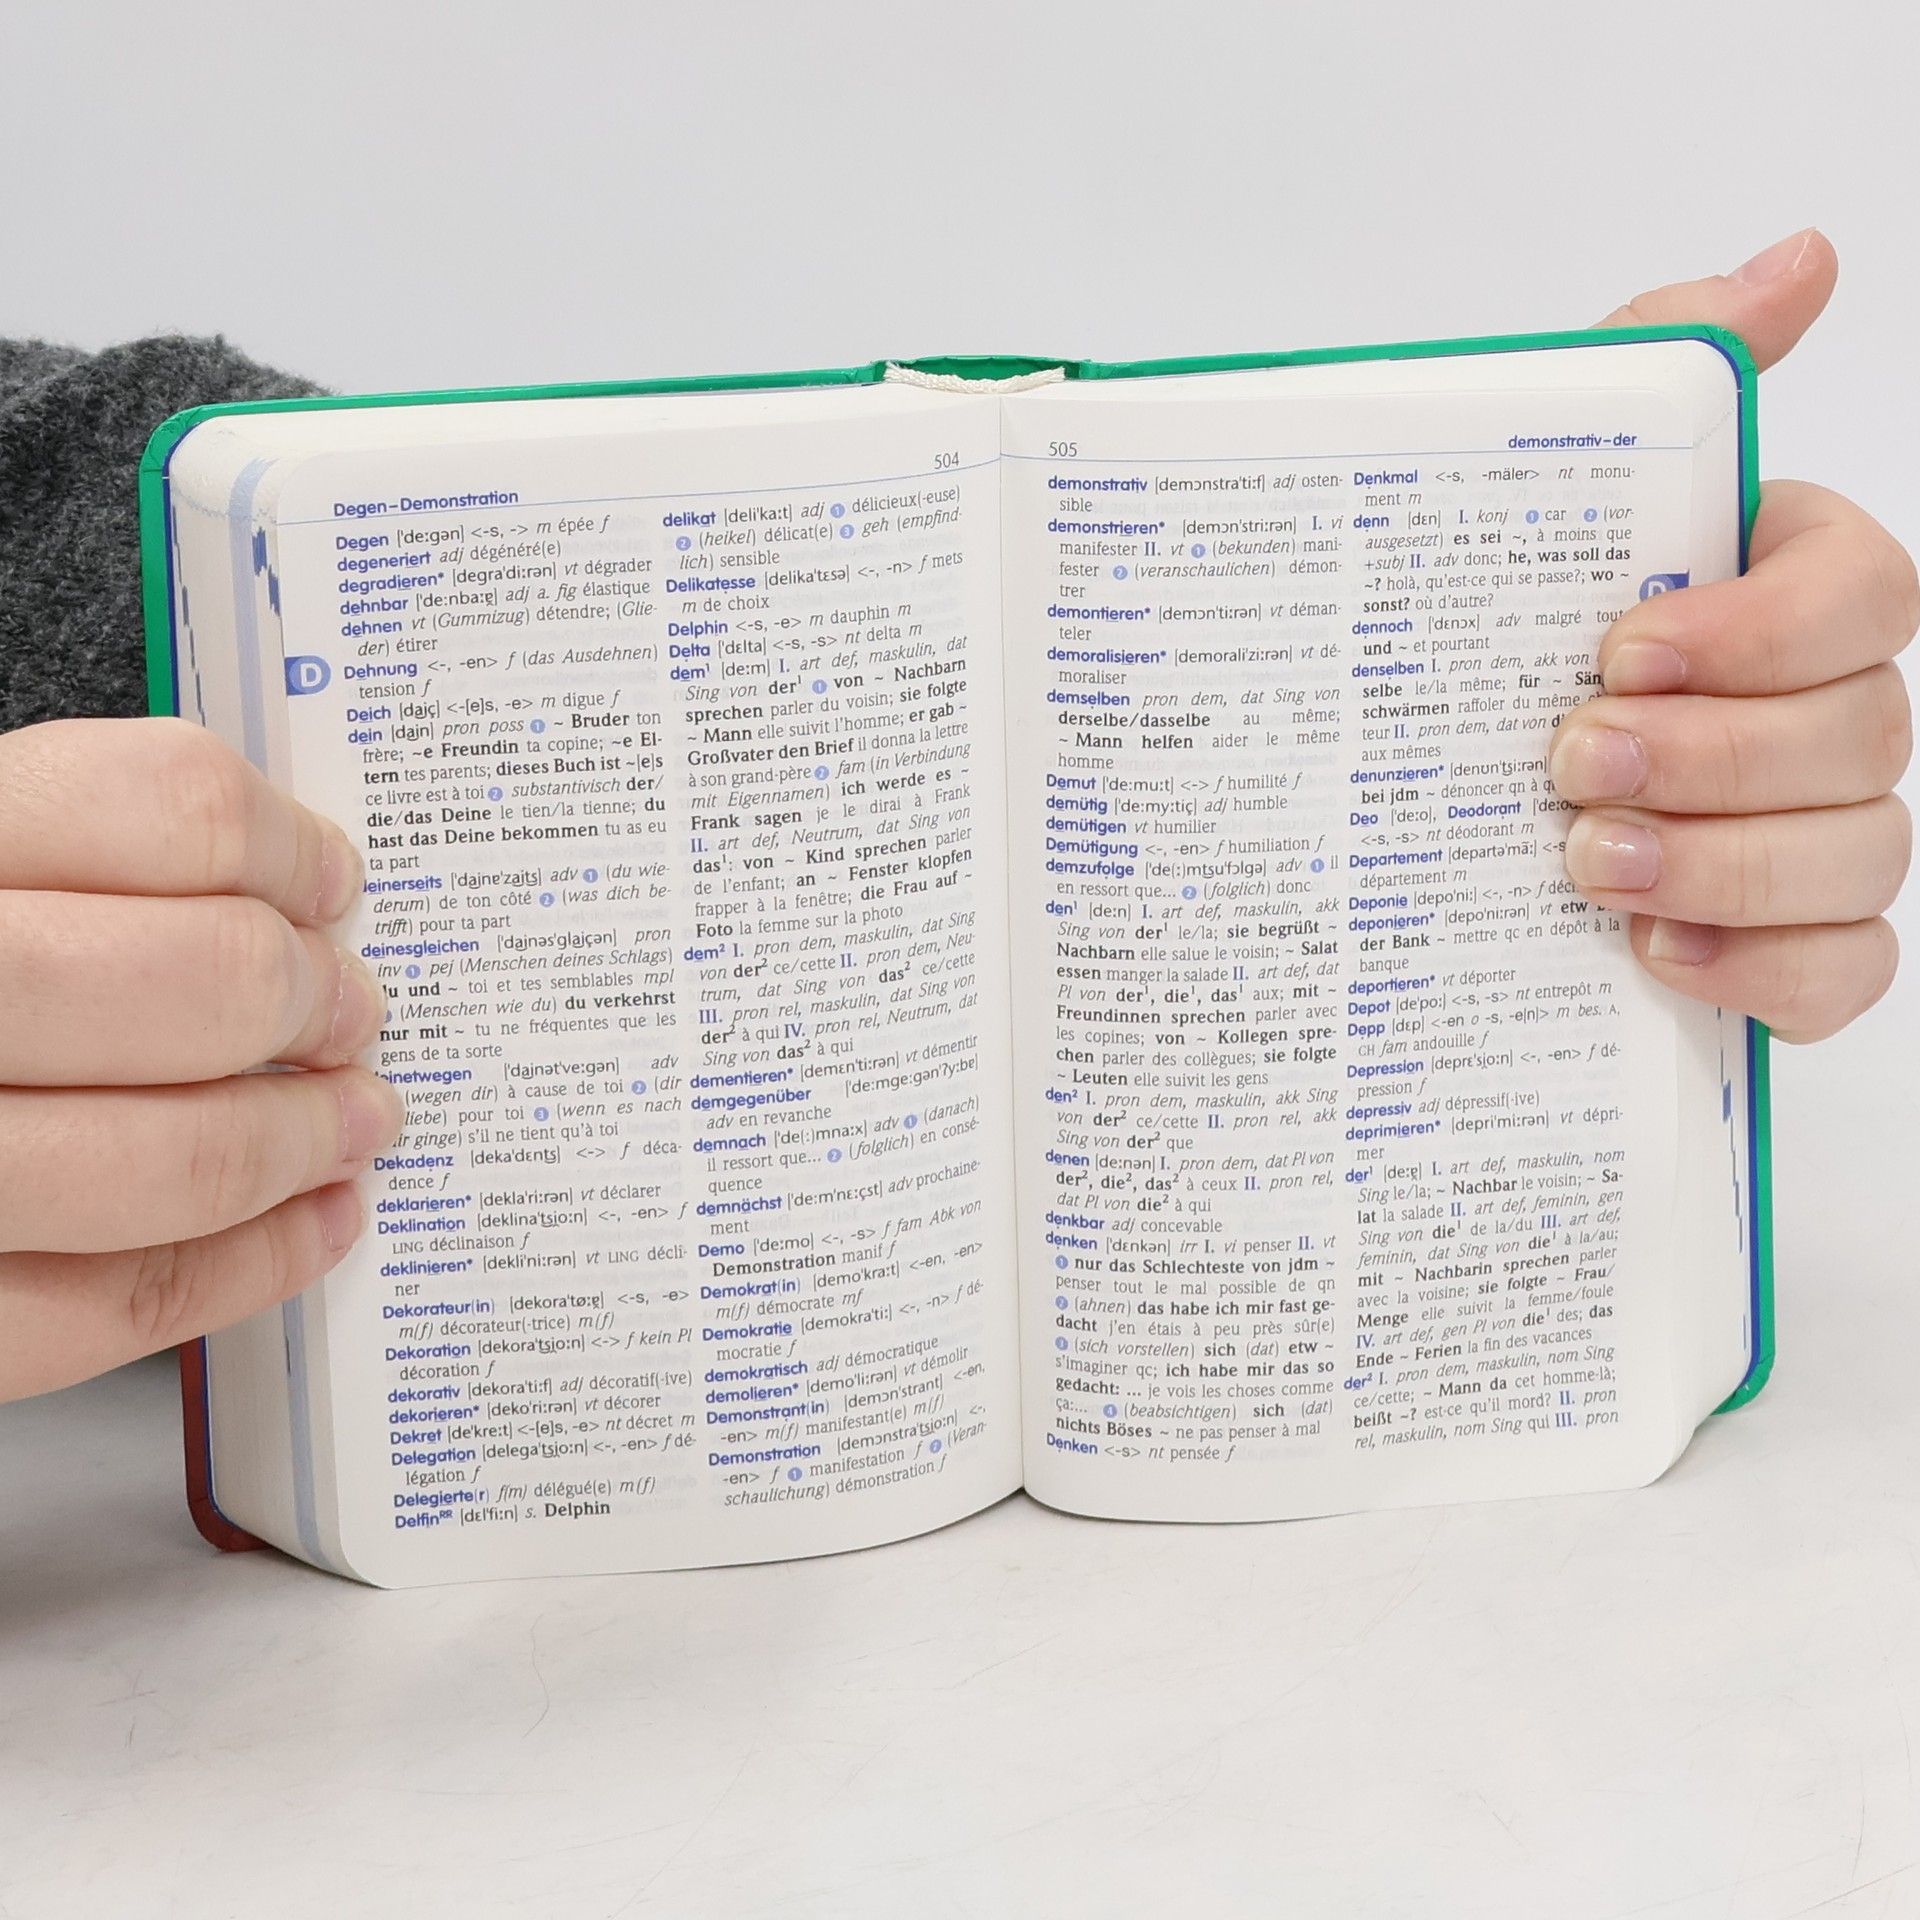 504
Degen–Demonstration
Degen ['de:gən] <-s, -> m épée f
degeneriert adj dégénéré(e)
degradieren* [degra'di:rən] vt dégrader
dehnbar ['de:nba:ɐ̯] adj a. fig élastique
dehnen vt (Gummizug) détendre; (Glie-
der) étirer
D
Dehnung <-, -en> f (das Ausdehnen)
tension f
Deich [daiç] <-[e]s, -e> m digue f
dein [dain] pron poss ❶ ~ Bruder ton
frère; ~e Freundin ta copine; ~e El-
tern tes parents; dieses Buch ist ~[e]s
ce livre est à toi ❷ substantivisch der/
die/das Deine le tien/la tienne; du
hast das Deine bekommen tu as eu
ta part
einerseits ['dainɐ'zaits] adv ❶ (du wie-
derum) de ton côté ❷ (was dich be-
trifft) pour ta part
deinesgleichen ['dainəs'glaiçən] pron
inv ❶ pej (Menschen deines Schlags)
und ~ toi et tes semblables mpl
(Menschen wie du) du verkehrst
nur mit ~ tu ne fréquentes que les
gens de ta sorte
inetwegen ['dainət've:gən] adv
(wegen dir) à cause de toi ❷ (dir
liebe) pour toi ❸ (wenn es nach
ginge) s'il ne tient qu'à toi
Dekadenz [deka'dɛnts] <-> f déca-
dence f
deklarieren* [dekla'ri:rən] vt déclarer
Deklination [deklina'tsio:n] <-, -en> f
LING déclinaison f
deklinieren* [dekli'ni:rən] vt LING décli-
ner
Dekorateur(in) [dekora'tø:ɐ̯] <-s, -e>
m(f) décorateur(-trice) m(f)
Dekoration [dekora'tsio:n] <-> f kein Pl
décoration f
dekorativ [dekora'ti:f] adj décoratif(-ive)
dekorieren* [deko'ri:rən] vt décorer
Dekret [de'kre:t] <-[e]s, -e> nt décret m
Delegation [delega'tsio:n] <-, -en> f dé-
légation f
Delegierte(r) f(m) délégué(e) m(f)
DelfinRR [dɛl'fi:n] s. Delphin
delikat [deli'ka:t] adj ❶ délicieux(-euse)
❷ (heikel) délicat(e) ❸ geh (empfind-
lich) sensible
Delikatesse [delika'tɛsə] <-, -n> f mets
m de choix
Delphin <-s, -e> m dauphin m
Delta ['dɛlta] <-s, -s> nt delta m
dem¹ [de:m] I. art def, maskulin, dat
Sing von der¹ ❶ von ~ Nachbarn
sprechen parler du voisin; sie folgte
~ Mann elle suivit l'homme; er gab ~
Großvater den Brief il donna la lettre
à son grand-père ❷ fam (in Verbindung
mit Eigennamen) ich werde es ~
Frank sagen je le dirai à Frank
II. art def, Neutrum, dat Sing von
das¹: von ~ Kind sprechen parler
de l'enfant; an ~ Fenster klopfen
frapper à la fenêtre; die Frau auf ~
Foto la femme sur la photo
dem² I. pron dem, maskulin, dat Sing
von der² ce/cette II. pron dem, Neu-
trum, dat Sing von das² ce/cette
III. pron rel, maskulin, dat Sing von
der² à qui IV. pron rel, Neutrum, dat
Sing von das² à qui
dementieren* [demɛn'ti:rən] vt démentir
demgegenüber ['de:mge:gən'ʔy:bɐ]
adv en revanche
demnach ['de(:)mna:x] adv ❶ (danach)
il ressort que... ❷ (folglich) en consé-
quence
demnächst ['de:m'nɛ:çst] adv prochaine-
ment
Demo ['de:mo] <-, -s> f fam Abk von
Demonstration manif f
Demokrat(in) [demo'kra:t] <-en, -en>
m(f) démocrate mf
Demokratie [demokra'ti:] <-, -n> f dé-
mocratie f
demokratisch adj démocratique
demolieren* [demo'li:rən] vt démolir
Demonstrant(in) [demɔn'strant] <-en,
-en> m(f) manifestant(e) m(f)
Demonstration [demɔnstra'tsio:n] <-,
-en> f ❶ manifestation f ❷ (Veran-
schaulichung) démonstration f
505
demonstrativ–der
demonstrativ [demɔnstra'ti:f] adj osten-
sible
demonstrieren* [demɔn'stri:rən] I. vi
manifester II. vt ❶ (bekunden) mani-
fester ❷ (veranschaulichen) démon-
trer
demontieren* [demɔn'ti:rən] vt déman-
teler
demoralisieren* [demorali'zi:rən] vt dé-
moraliser
demselben pron dem, dat Sing von
derselbe/dasselbe au même;
~ Mann helfen aider le même
homme
Demut ['de:mu:t] <-> f humilité f
demütig ['de:my:tiç] adj humble
demütigen vt humilier
Demütigung <-, -en> f humiliation f
demzufolge ['de(:)mtsu'fɔlgə] adv ❶ il
en ressort que... ❷ (folglich) donc
den¹ [de:n] I. art def, maskulin, akk
Sing von der¹ le/la; sie begrüßt ~
Nachbarn elle salue le voisin; ~ Salat
essen manger la salade II. art def, dat
Pl von der¹, die¹, das¹ aux; mit ~
Freundinnen sprechen parler avec
les copines; von ~ Kollegen spre-
chen parler des collègues; sie folgte
~ Leuten elle suivit les gens
den² I. pron dem, maskulin, akk Sing
von der² ce/cette II. pron rel, akk
Sing von der² que
denen [de:nən] I. pron dem, dat Pl von
der², die², das² à ceux II. pron rel,
dat Pl von die² à qui
denkbar adj concevable
denken ['dɛnkən] irr I. vi penser II. vt
❶ nur das Schlechteste von jdm ~
penser tout le mal possible de qn
❷ (ahnen) das habe ich mir fast ge-
dacht j'en étais à peu près sûr(e)
❸ (sich vorstellen) sich (dat) etw ~
s'imaginer qc; ich habe mir das so
gedacht: ... je vois les choses comme
ça:... ❹ (beabsichtigen) sich (dat)
nichts Böses ~ ne pas penser à mal
Denken <-s> nt pensée f
Denkmal <-s, -mäler> nt monu-
ment m
denn [dɛn] I. konj ❶ car ❷ (vor-
ausgesetzt) es sei ~, à moins que
+subj II. adv donc; he, was soll das
~? holà, qu'est-ce qui se passe?; wo ~
sonst? où d'autre?
D
dennoch ['dɛnɔx] adv malgré tout
und ~ et pourtant
denselben I. pron dem, akk von
selbe le/la même; für ~
schwärmen raffoler du même
teur II. pron dem, dat von
aux mêmes
denunzieren* [denʊn'tsi:rən]
bei jdm ~ dénoncer qn à
Deo ['de:o], Deodorant
<-s, -s> nt déodorant m
Departement [departə'mã:]
département m
Deponie [depo'ni:] <-, -n> f
deponieren* [depo'ni:rən] vt etw
der Bank ~ mettre qc en dépôt à la
banque
deportieren* vt déporter
Depot [de'po:] <-s, -s> nt entrepôt m
Depp [dɛp] <-en o -s, -e[n]> m bes. A,
CH fam andouille f
Depression [deprɛ'sio:n] <-, -en> f dé-
pression f
depressiv adj dépressif(-ive)
deprimieren* [depri'mi:rən] vt dépri-
mer
der¹ [de:ɐ̯] I. art def, maskulin, nom
Sing le/la; ~ Nachbar le voisin; ~ Sa-
lat la salade II. art def, feminin, gen
Sing von die¹ de la/du III. art def,
feminin, dat Sing von die¹ à la/au;
mit ~ Nachbarin sprechen parler
avec la voisine; sie folgte ~ Frau/
Menge elle suivit la femme/foule
IV. art def, gen Pl von die¹ des; das
Ende ~ Ferien la fin des vacances
der² I. pron dem, maskulin, nom Sing
ce/cette; ~ Mann da cet homme-là;
beißt ~? est-ce qu'il mord? II. pron
rel, maskulin, nom Sing qui III. pron